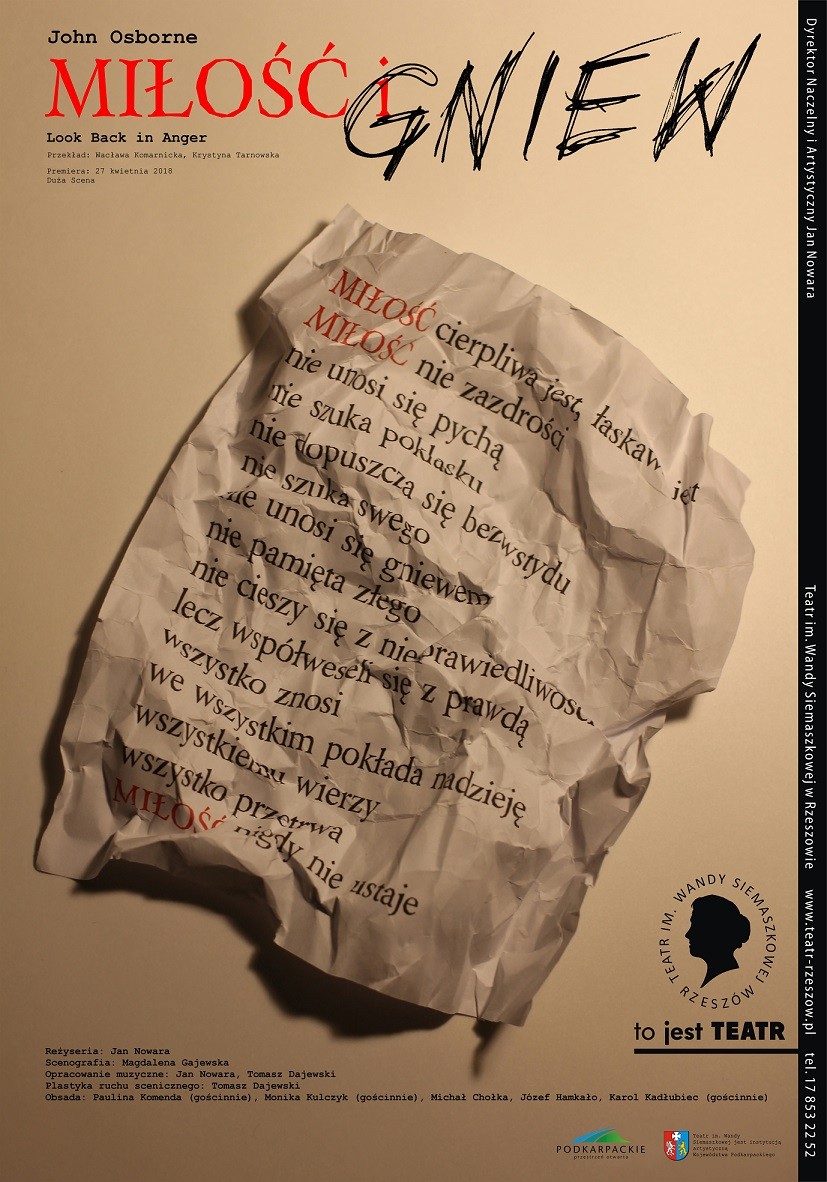 John Osborne
MIŁOŚĆ i GNIEW
Look Back in Anger
Przekład: Wacława Komarnicka, Krystyna Tarnowska
Premiera: 27 kwietnia 2018
Duża Scena
MIŁOŚĆ cierpliwa jest, łaskaw jest
MIŁOŚĆ nie zazdrości
nie unosi się pychą
nie szuka poklasku
nie dopuszcza się bezwstydu
nie szuka swego
nie unosi się gniewem
nie pamięta złego
nie cieszy się z niesprawiedliwości
lecz współweseli się z prawdą
wszystko znosi
we wszystkim pokłada nadzieję
wszystkiemu wierzy
wszystko przetrwa
MIŁOŚĆ nigdy nie ustaje
TEATR IM. WANDY SIEMASZKOWEJ
RZESZÓW
to jest TEATR
Reżyseria: Jan Nowara
Scenografia: Magdalena Gajewska
Opracowanie muzyczne: Jan Nowara, Tomasz Dajewski
Plastyka ruchu scenicznego: Tomasz Dajewski
Obsada: Paulina Komenda (gościnnie), Monika Kulczyk (gościnnie), Michał Chołka, Józef Hamkało, Karol Kadłubiec (gościnnie)
PODKARPACKIE
przestrzeń otwarta
Teatr im. Wandy
Siemaszkowej jest instytucją
artystyczną
Województwa Podkarpackiego
Dyrektor Naczelny i Artystyczny Jan Nowara
Teatr im. Wandy Siemaszkowej w Rzeszowie www.teatr-rzeszow.pl tel. 17 853 22 52